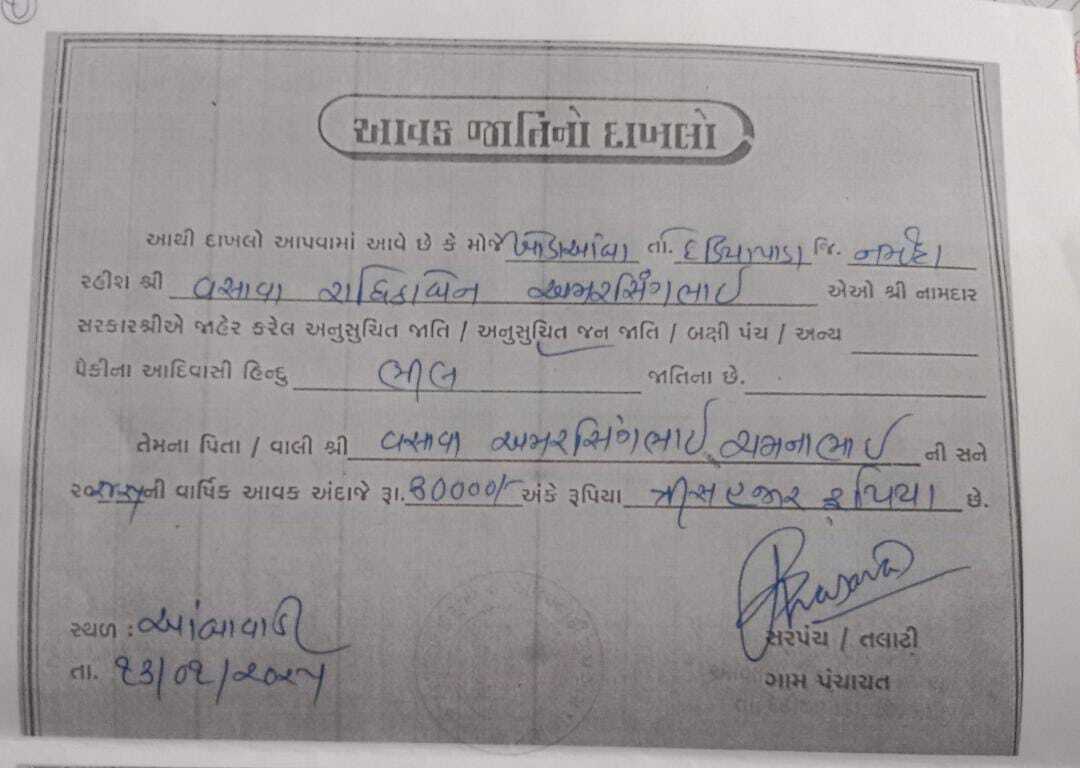 આવક જાતિનો દાખલો
આથી દાખલો આપવામાં આવે છે કે મોજે ખોડાઆંબા તા. દેડિયાપાડા જિ. નર્મદા
રહીશ શ્રી વસાવા રાધિકાબેન અમરસિંગભાઈ એઓ શ્રી નામદાર
સરકારશ્રીએ જાહેર કરેલ અનુસુચિત જાતિ / અનુસુચિત જન જાતિ / બક્ષી પંચ / અન્ય
પૈકીના આદિવાસી હિન્દુ ભીલ જાતિના છે.
તેમના પિતા / વાલી શ્રી વસાવા અમરસિંગભાઈ ચમનાભાઈ ની સને
ની વાર્ષિક આવક અંદાજે રૂા. 30000/- અંકે રૂપિયા ત્રીસ હજાર રૂપિયા છે.
સ્થળ : આંબાવાડી
તા. ૧૩/૦૧/૨૦૨૫
Vasava
સરપંચ / તલાટી
ગામ પંચાયત